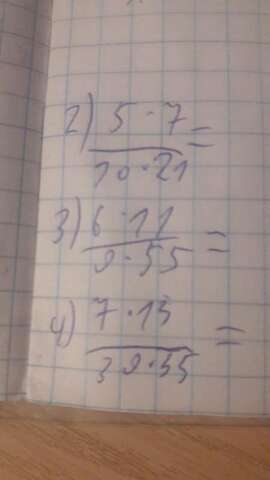 2) 5·7
10·21 =
3) 6·11
9·55 =
4) 7·13
39·55 =